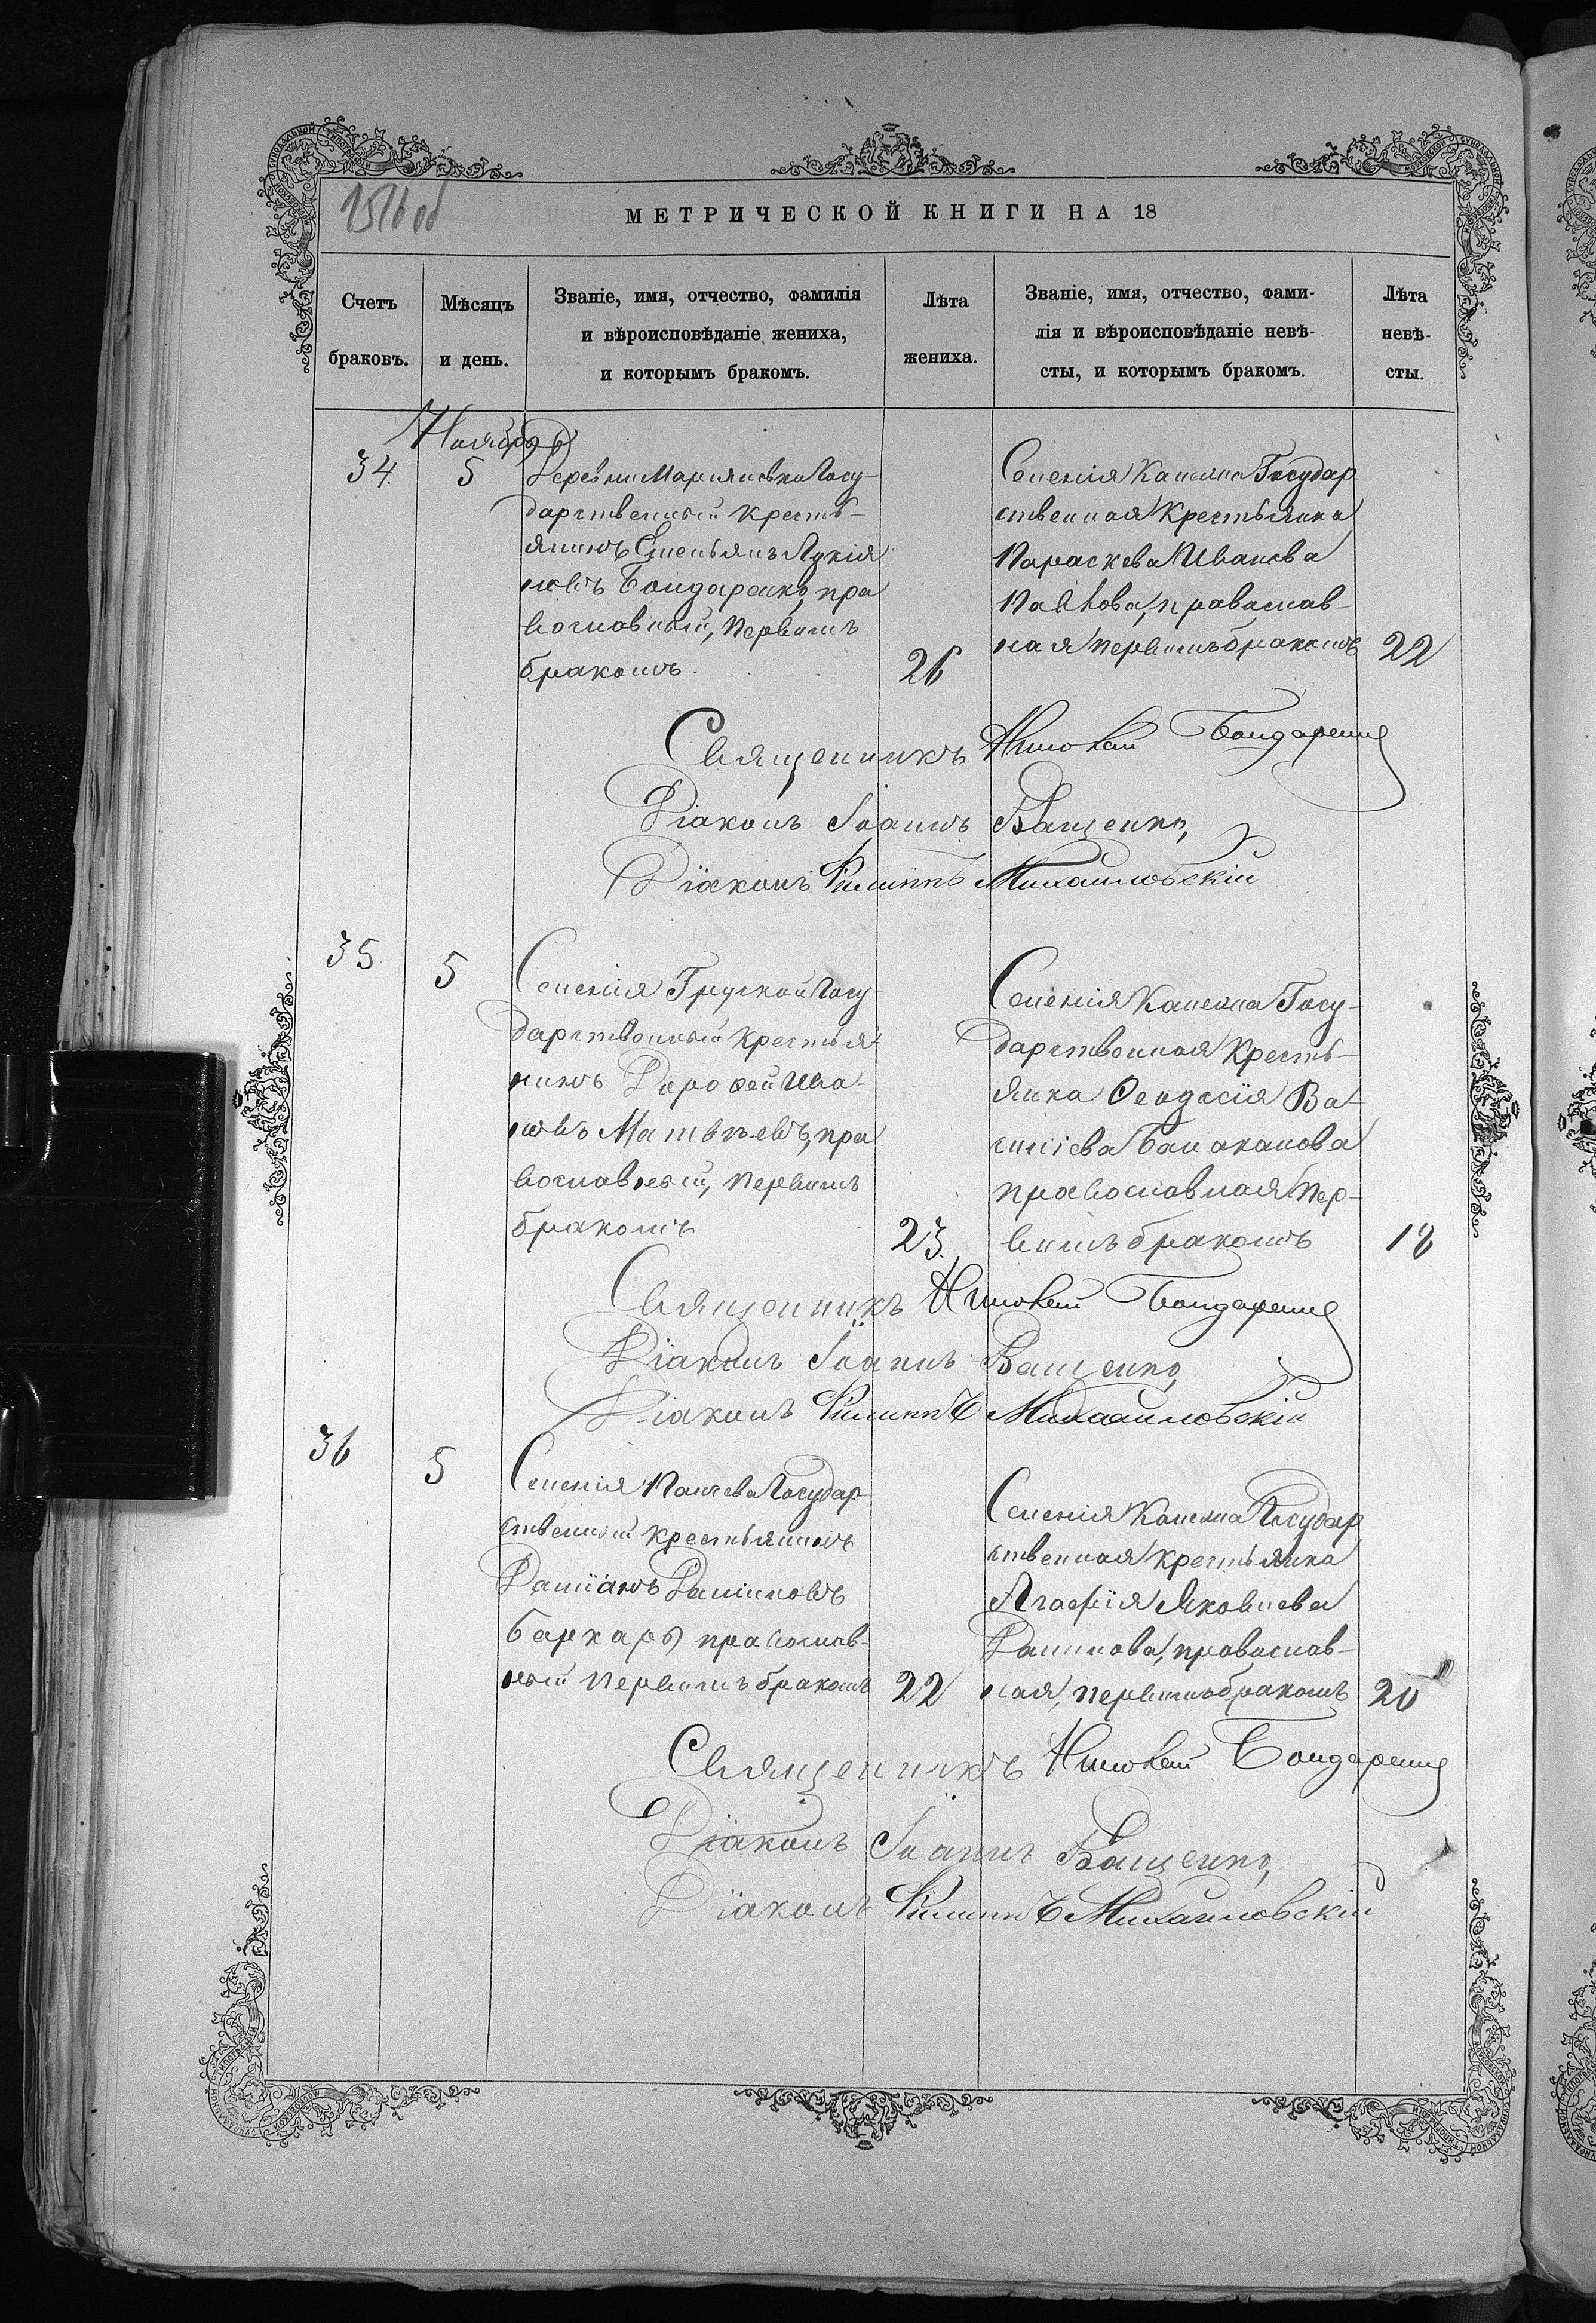 МЕТРИЧЕСКОЙ КНИГИ НА 18
Счетъ браковъ.
Мѣсяцъ и день.
Званіе, имя, отчество, фамилія
и вѣроисповѣданіе жениха,
и которымъ бракомъ.
Лѣта жениха.
Званіе, имя, отчество, фами-
лія и вѣроисповѣданіе невѣ-
сты, и которымъ бракомъ.
Лѣта невѣ-
сты.
Ноябрь
34.
5
Деревни Мариановки Госу-
дарственный кресть-
янинъ Емельянъ Лукія
новъ Бондаренко, пра
вославный, первымъ
бракомъ.
26
Селенія Капкана Государ
ственная крестьянка
Параскева Иванова
Павлова, православ-
ная первымъ бракомъ
22
Священникъ Бондаренко
Діаконъ Іоаннъ Ващенко,
Діаконъ Филиппъ Михаиловскій
35
5
Селенія Грузкой Госу-
дарственный крестья
нинъ Дорофей Ива-
новъ Матвѣевъ, пра
вославный, первымъ
бракомъ
23.
Селенія Госу-
дарственная кресть-
янка Ѳеодосія Ва-
силіева
православная пер-
вымъ бракомъ
18
Священникъ Бондаренко
Діаконъ Іоаннъ Ващенко,
Діаконъ Филиппъ Михаиловскій
36
5
Селенія Панчева Государ
ственный крестьянинъ
Даміанъ Даміановъ
Бархарь православ-
ный первымъ бракомъ
22
Селенія Государ
ственная крестьянка
Агафія Яковлева
православ-
ная, первымъ бракомъ
20
Священникъ Бондаренко
Діаконъ Іоаннъ Ващенко,
Діаконъ Филиппъ Михаиловскій